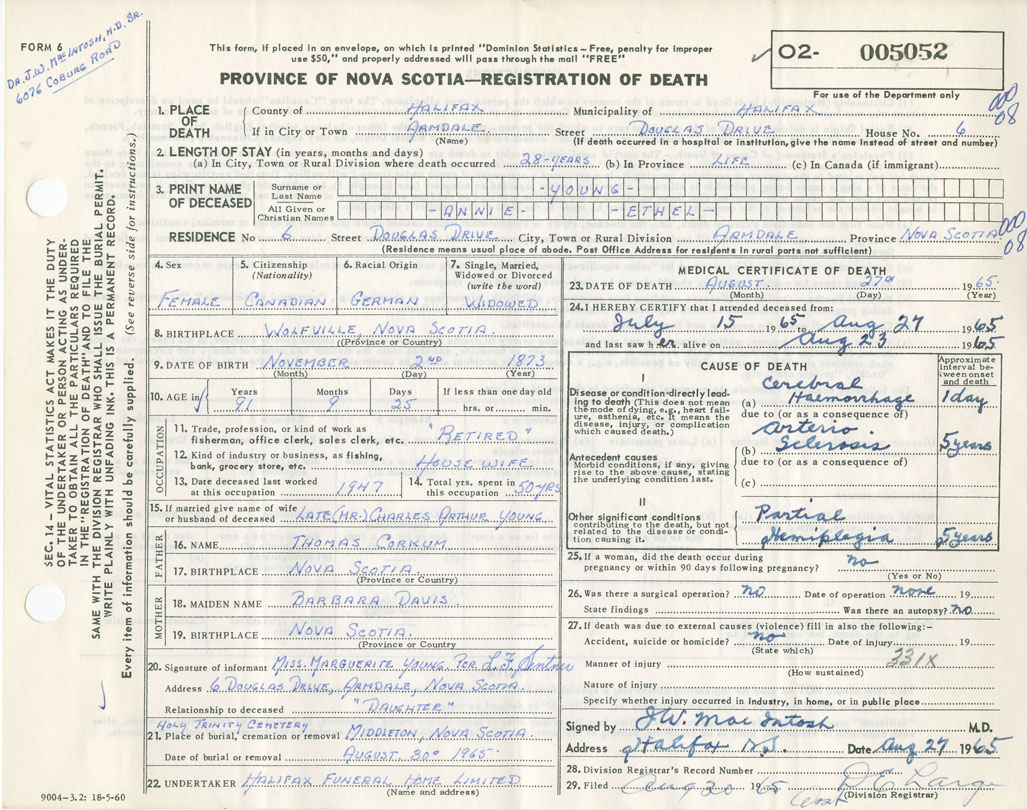 FORM 6
DR. J.W. MacINTOSH, M.D. SR.
6076 COBURG ROAD
This form, if placed in an envelope, on which is printed "Dominion Statistics – Free, penalty for improper
use $50," and properly addressed will pass through the mail "FREE"
PROVINCE OF NOVA SCOTIA—REGISTRATION OF DEATH
O2- 005052
For use of the Department only
000
08
1. PLACE OF DEATH County of HALIFAX Municipality of HALIFAX
If in City or Town ARMDALE Street DOUGLAS DRIVE House No. 6
(Name) (If death occurred in a hospital or institution, give the name instead of street and number)
2. LENGTH OF STAY (in years, months and days)
(a) In City, Town or Rural Division where death occurred 28-YEARS (b) In Province LIFE (c) In Canada (if immigrant)
3. PRINT NAME OF DECEASED Surname or Last Name -YOUNG-
All Given or Christian Names -ANNIE- -ETHEL-
000
08
RESIDENCE No 6 Street DOUGLAS DRIVE City, Town or Rural Division ARMDALE Province NOVA SCOTIA
(Residence means usual place of abode. Post Office Address for residents in rural parts not sufficient)
SEC. 14 – VITAL STATISTICS ACT MAKES IT THE DUTY
OF THE UNDERTAKER OR PERSON ACTING AS UNDER-
TAKER TO OBTAIN ALL THE PARTICULARS REQUIRED
IN THE "REGISTRATION OF DEATH" AND TO FILE THE
SAME WITH THE DIVISION REGISTRAR WHO SHALL ISSUE THE BURIAL PERMIT.
WRITE PLAINLY WITH UNFADING INK. THIS IS A PERMANENT RECORD.
Every item of information should be carefully supplied. (See reverse side for instructions.)
4. Sex
FEMALE
5. Citizenship
(Nationality)
CANADIAN
6. Racial Origin
GERMAN
7. Single, Married,
Widowed or Divorced
(write the word)
WIDOWED
8. BIRTHPLACE WOLFVILLE NOVA SCOTIA.
(Province or Country)
9. DATE OF BIRTH NOVEMBER 2ND 1873
(Month) (Day) (Year)
10. AGE in Years Months Days If less than one day old
91 9 25 hrs. or min.
OCCUPATION
11. Trade, profession, or kind of work as
fisherman, office clerk, sales clerk, etc. "RETIRED"
12. Kind of industry or business, as fishing,
bank, grocery store, etc. HOUSE WIFE
13. Date deceased last worked
at this occupation 1947
14. Total yrs. spent in
this occupation 50 YRS
15. If married give name of wife
or husband of deceased LATE (MR.) CHARLES ARTHUR YOUNG
FATHER
16. NAME THOMAS CORKUM
17. BIRTHPLACE NOVA SCOTIA
(Province or Country)
MOTHER
18. MAIDEN NAME BARBARA DAVIS
19. BIRTHPLACE NOVA SCOTIA.
(Province or Country
20. Signature of informant MISS. MARGUERITE YOUNG PER L.F.
Address 6 DOUGLAS DRIVE, ARMDALE, NOVA SCOTIA.
Relationship to deceased "DAUGHTER"
HOLY TRINITY CEMETERY
21. Place of burial, cremation or removal MIDDLETON, NOVA SCOTIA.
Date of burial or removal AUGUST 30th 1965
22. UNDERTAKER HALIFAX FUNERAL HOME LIMITED
(Name and address)
9004-3.2: 18-5-60
MEDICAL CERTIFICATE OF DEATH
23. DATE OF DEATH AUGUST. 27th 1965.
(Month) (Day) (Year)
24. I HEREBY CERTIFY that I attended deceased from:
July 15 1965 to Aug 27 1965
and last saw her alive on Aug 23 1965
CAUSE OF DEATH
Approximate
interval be-
tween onset
and death
I
Disease or condition directly lead-
ing to death (This does not mean
the mode of dying, e.g., heart fail-
ure, asthenia, etc. It means the
disease, injury, or complication
which caused death.)
(a) Cerebral Haemorrhage 1 day
due to (or as a consequence of)
Antecedent causes
Morbid conditions, if any, giving
rise to the above cause, stating
the underlying condition last.
(b) Arterio Sclerosis 5 years
due to (or as a consequence of)
(c)
II
Other significant conditions
contributing to the death, but not
related to the disease or condi-
tion causing it.
Partial Hemiplegia 5 years
25. If a woman, did the death occur during
pregnancy or within 90 days following pregnancy? no
(Yes or No)
26. Was there a surgical operation? no Date of operation none 19
State findings Was there an autopsy? no
27. If death was due to external causes (violence) fill in also the following:-
Accident, suicide or homicide? no Date of injury 19
(State which)
Manner of injury 331X
(How sustained)
Nature of injury
Specify whether injury occurred in Industry, in home, or in public place
Signed by J.W. MacIntosh M.D.
Address Halifax N.S. Date Aug 27 1965
28. Division Registrar's Record Number
29. Filed Aug 30 1965
(Division Registrar)